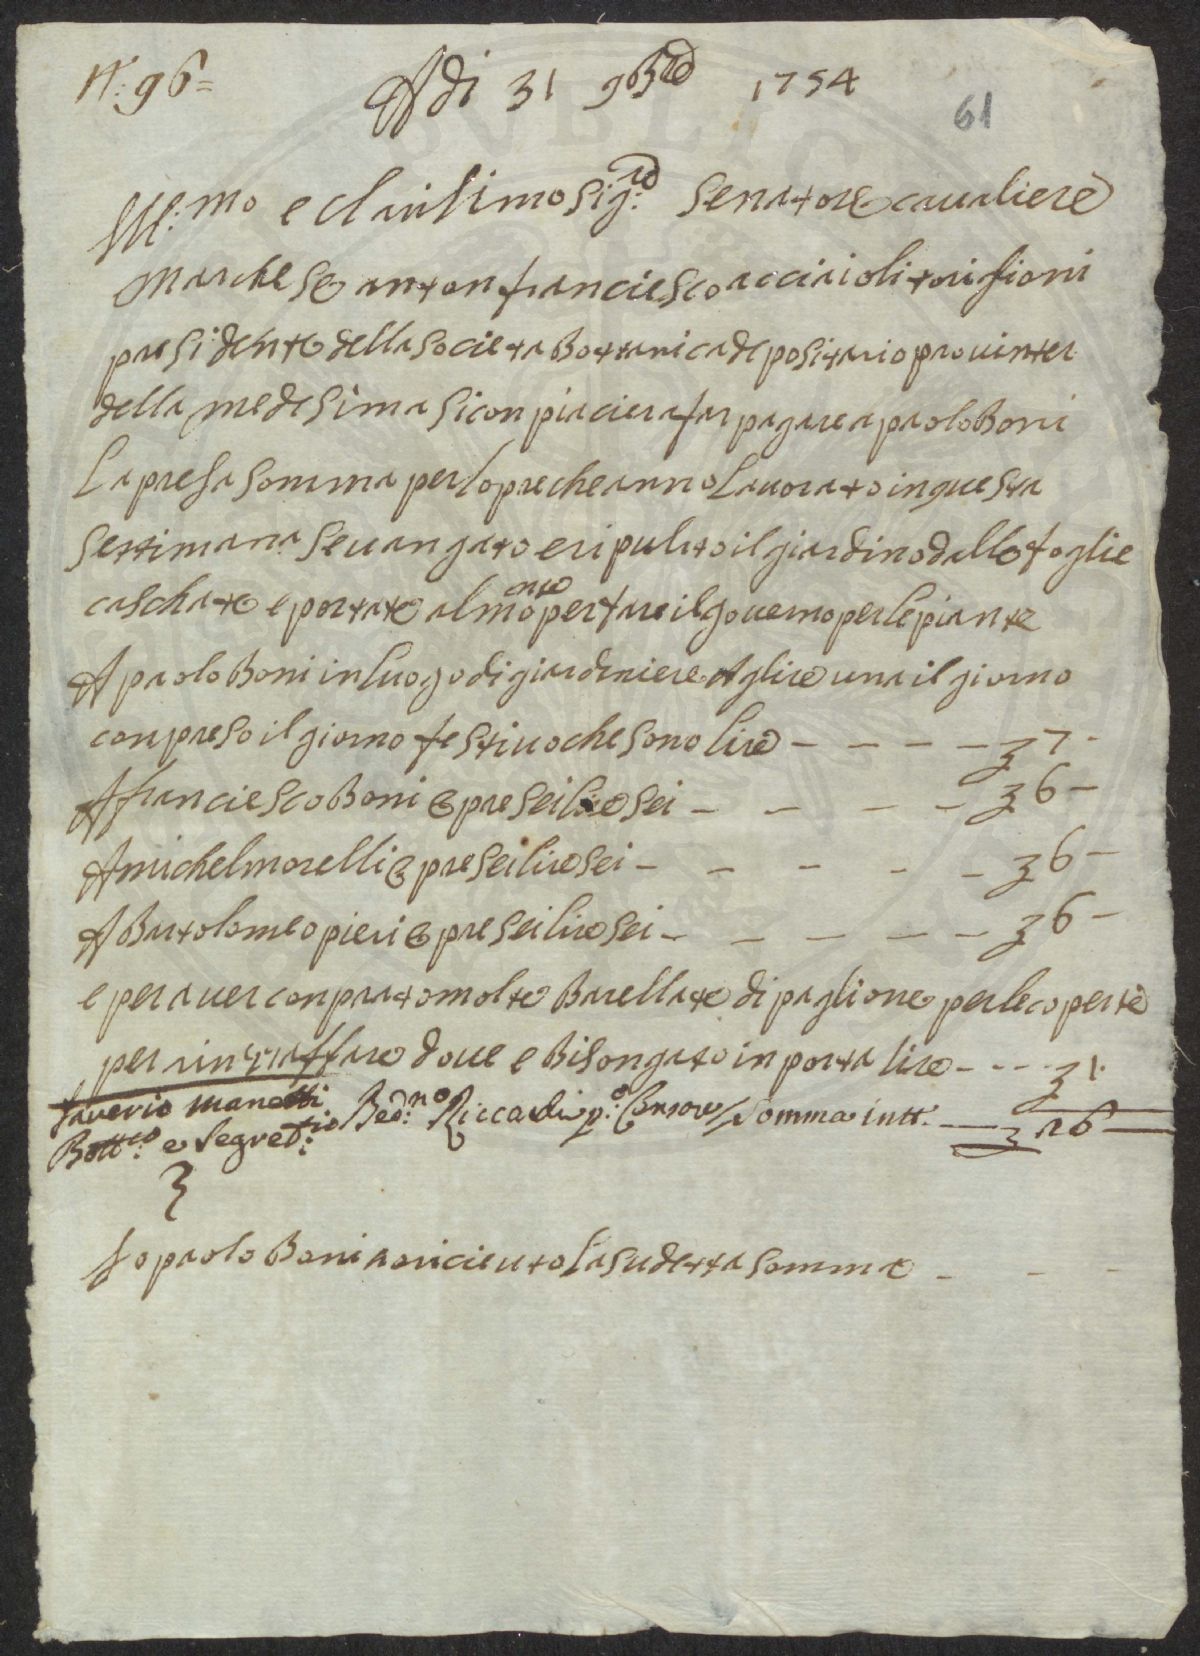 N.: 96=
Adi 31 9bre 1754
61
Ill:mo e Clarisimo Sig:re Senatore cavaliere
Marchese anton franciesco acciaioli torigioni
presidente della Societa Bottanica depositario provinter
della medesima si conpiaciera far pagare a paolo Boni
La presa somma per lopre che anno Lavorato in questa
settimana se vangato e ripulito il giardino dalle foglie
caschate e portate al mo per fare il governo per le piante
A paolo Boni in luogo di giardiniere A glire una il giorno
conpreso il giorno festivo che sono lire - - - - 7 -
A franciesco Boni e pre sei lire sei - - - - 6 -
A michel morelli e pre sei lire sei - - - - - 6 -
A Bartolomeo pieri e pre sei lire sei - - - - - 6 -
e per aver conprato molte Barellate di paglione per le coperte
per dove e Bisongato in porta lire - - - - 1 -
Saverio Manetti
Bott:co e Segret:rio Bed:no Riccardi p:o Censore Somma in tt. - 26 -
Io paolo Boni o ricieuto La sudetta somma - - -